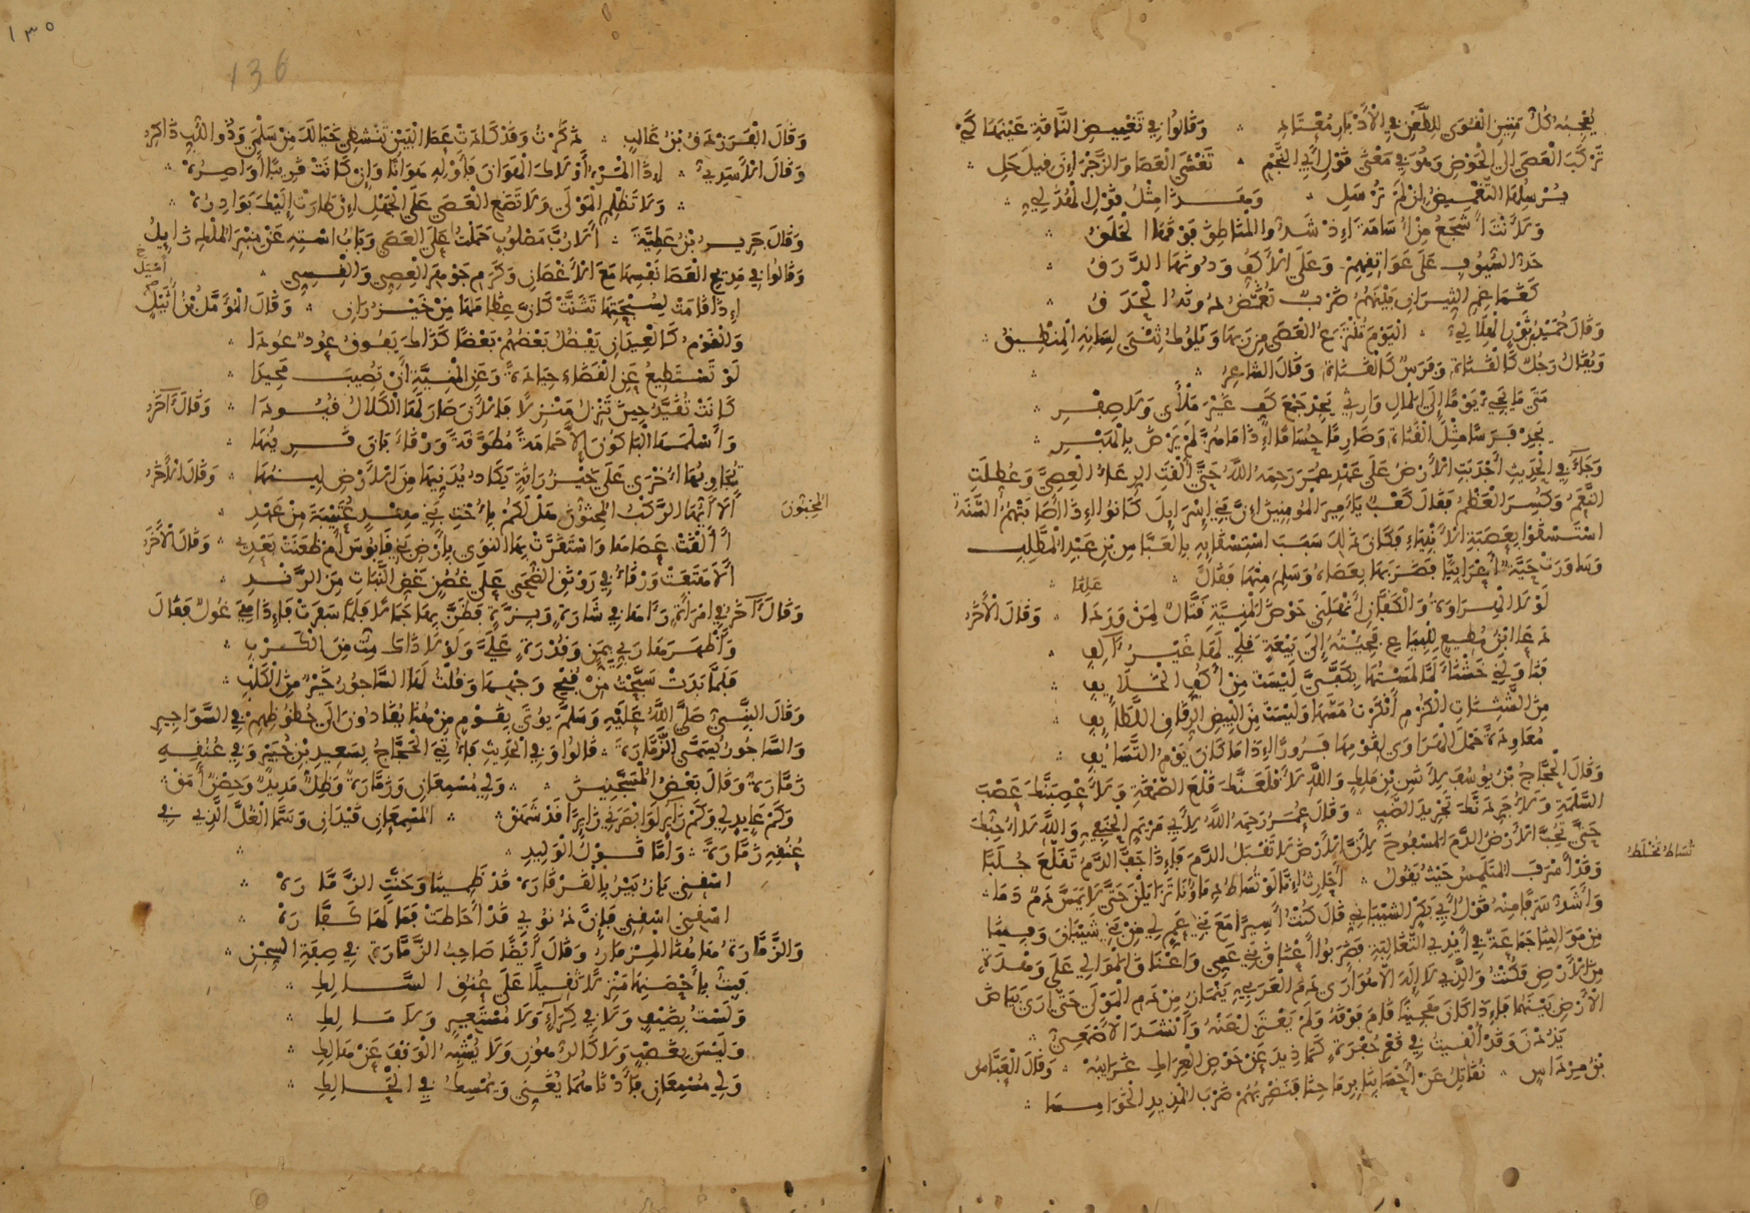 يُعْجِبُهُ كُلُّ مَتِينِ الْقُوَى لِلطَّعْنِ فِي الْأَدْبَارِ مُعْتَادِ ۞ وَقَالُوا فِي تَغْمِيضِ النَّاقَةِ عَيْنَهَا كَيْ
تَرْكَبَ الْعَصَى إِلَى الْحَوْضِ وَهُوَ فِي مَعْنَى قَوْلِ أَبِي النَّجْمِ ۞ تَغْشَى الْعَصَا وَالزَّجْرَ إِنْ قِيلَ حَلِ
يُرْسِلُهَا التَّغْمِيضُ إِنْ لَمْ تُرْسَلِ ۞ وَهَذَا مِثْلُ قَوْلِ الْهُذَلِيِّ
وَلَأَنْتَ أَشْجَعُ مِنْ أُسَامَةَ إِذْ شَدُّوا الْمَنَاطِقَ فَوْقَهَا الْحَلَقُ
حَدَّ السُّيُوفِ عَلَى عَوَاتِقِهِمْ وَعَلَى الْأَكُفِّ وَدُونَهَا الدَّرَقُ
كَغَمَاغِمِ الثِّيرَانِ بَيْنَهُمْ ضَرْبٌ تُغَمَّضُ دُونَهُ الْحَدَقُ
وَقَالَ حُمَيْدُ بْنُ ثَوْرٍ الْهِلَالِيُّ ۞ الْيَوْمَ تُنْتَزَعُ الْعَصَى مِنْ رَبِّهَا وَيَلُوكُ ثِنْيَ لِسَانِهِ الْمِنْطِيقُ
وَيُقَالُ رَجُلٌ كَالْقَنَاةِ وَفَرَسٌ كَالْقَنَاةِ وَقَالَ الشَّاعِرُ
مَتَى مَا يَجِئْ يَوْمًا إِلَى الْمَالِ وَارِثِي يَجِدْ جُمْعَ كَفٍّ غَيْرَ مَلْأَى وَلَا صِفْرِ
يَجِدْ فَرَسًا مِثْلَ الْقَنَاةِ وَصَارِمًا حُسَامًا إِذَا مَا هُزَّ لَمْ يَرْضَ بِالْهَبْرِ
وَجَاءَ فِي الْحَدِيثِ أَجْدَبَتِ الْأَرْضُ عَلَى عَهْدِ عُمَرَ رَحِمَهُ اللَّهُ حَتَّى أَلْقَتِ الرِّعَاءُ الْعِصِيَّ وَعُطِّلَتِ
النَّعَمُ وَكُسِرَ الْعَظْمُ فَقَالَ كَعْبٌ يَا أَمِيرَ الْمُؤْمِنِينَ إِنَّ بَنِي إِسْرَائِيلَ كَانُوا إِذَا أَصَابَتْهُمُ السَّنَةُ
اسْتَسْقَوْا بِعَصَبَةِ الْأَنْبِيَاءِ فَكَانَ ذَلِكَ سَبَبَ اسْتِسْقَائِهِ بِالْعَبَّاسِ بْنِ عَبْدِ الْمُطَّلِبِ
وَسَاوَرَتْ حَيَّةٌ أَعْرَابِيًّا فَضَرَبَهَا بِعَصَاهُ وَسَلِمَ مِنْهَا فَقَالَ ۞
لَوْلَا الْهِرَاوَةُ وَالْكَفَّانِ أَنْهَلَنِي حَوْضَ الْمَنِيَّةِ قَتَّالٌ لِمَنْ وَرَدَا ۞ وَقَالَ الْآخَرُ
دَعَا ابْنُ مُطِيعٍ لِلْبِيَاعِ فَجِئْتُهُ إِلَى بَيْعَةٍ قَلْبِي لَهَا غَيْرُ آلِفِ
فَنَاوَلَنِي خَشْنَاءَ لَمَّا لَمَسْتُهَا بِكَفِّيَ لَيْسَتْ مِنْ أَكُفِّ الْخَلَائِفِ
مِنَ الشَّثِنَاتِ الْكُزْمِ أَنْكَرْتُ مَسَّهَا وَلَيْسَتْ مِنَ الْبِيضِ الرِّقَاقِ اللَّطَائِفِ
مُعَاوِدَةً حَمْلَ الْهَرَاوَى لِقَوْمِهَا فَرُورًا إِذَا مَا كَانَ يَوْمُ التَّسَايُفِ
وَقَالَ الْحَجَّاجُ بْنُ يُوسُفَ لِأَنَسِ بْنِ مَالِكٍ وَاللَّهِ لَأَقْلَعَنَّكَ قَلْعَ الصَّمْغَةِ وَلَأَعْصِبَنَّكَ عَصْبَ
السَّلَمَةِ وَلَأُجَرِّدَنَّكَ تَجْرِيدَ الضَّبِّ ۞ وَقَالَ عُمَرُ رَحِمَهُ اللَّهُ لِأَبِي مَرْيَمَ الْحَنَفِيِّ وَاللَّهِ لَا أُحِبُّكَ
حَتَّى تُحِبَّ الْأَرْضُ الدَّمَ الْمَسْفُوحَ لِأَنَّ الْأَرْضَ لَا تَقْبَلُ الدَّمَ فَإِذَا جَفَّ الدَّمُ تَقَلَّعَ جُلَبًا
تُسَاطُ تُخْلَطُ
وَقَدْ أَسْرَفَ الْمُتَلَمِّسُ حَيْثُ يَقُولُ ۞ أَحَارِثُ إِنَّا لَوْ تُسَاطُ دِمَاؤُنَا تَزَايَلْنَ حَتَّى لَا يَمَسَّ دَمٌ دَمَا
وَأَشَدُّ سَرَفًا مِنْهُ قَوْلُ أَبِي بَكْرٍ الشَّيْبَانِيِّ قَالَ كُنْتُ أَسِيرًا مَعَ بَنِي عَمٍّ لِي مِنْ بَنِي شَيْبَانَ وَفِينَا
مِنْ مَوَالِينَا جَمَاعَةٌ فِي أَيْدِي التَّغَالِبَةِ فَضَرَبُوا أَعْنَاقَ بَنِي عَمِّي وَأَعْنَاقَ الْمَوَالِي عَلَى وَهْدَةٍ
مِنَ الْأَرْضِ فَكُنْتُ وَالَّذِي لَا إِلَهَ إِلَّا هُوَ أَرَى دَمَ الْعَرَبِيِّ يَنْمَازُ مِنْ دَمِ الْمَوْلَى حَتَّى أَرَى بَيَاضَ
الْأَرْضِ بَيْنَهُمَا فَإِذَا كَانَ هَجِينًا قَامَ فَوْقَهُ وَلَمْ يَعْتَزِلْ عَنْهُ وَأَنْشَدَ الْأَصْمَعِيُّ
يَذُدْنَ وَقَدْ أُلْقِيتُ فِي قَعْرِ حُفْرَةٍ كَمَا ذِيدَ عَنْ حَوْضِ الْعِرَاكِ غَرَائِبُهْ ۞ وَقَالَ الْعَبَّاسُ
بْنُ مِرْدَاسٍ ۞ نُقَاتِلُ عَنْ أَحْسَابِنَا بِرِمَاحِنَا فَنَضْرِبُهُمْ ضَرْبَ الْمُذِيدِ الْخَوَامِسَا
١٣٥
136
وَقَالَ الْفَرَزْدَقُ بْنُ غَالِبٍ ۞ ذَكَرْتَ وَقَدْ كَادَتْ عَصَا الْبَيْنِ تَنْشَقِي خَيَالَكَ مِنْ سَلْمَى وَذُو اللُّبِّ ذَاكِرُ
وَقَالَ الْأَسَدِيُّ ۞ إِذَا الْمَرْءُ أَوْلَاكَ الْهَوَانَ فَأَوْلِهِ هَوَانًا وَإِنْ كَانَتْ قَرِيبًا أَوَاصِرُهْ
وَلَا تَظْلِمِ الْمَوْلَى وَلَا تَضَعِ الْعَصَى عَلَى الْجَهْلِ إِنْ طَارَتْ إِلَيْكَ بَوَادِرُهْ
وَقَالَ جَرِيرُ بْنُ عَطِيَّةَ ۞ أَلَا رُبَّ مَصْلُوبٍ حَمَلْتُ عَلَى الْعَصَى وَبَابُ اسْتِهِ عَنْ مِنْبَرِ الْمُلْكِ زَائِلُ
وَقَالُوا فِي مَدِيحِ الْعَصَا نَفْسِهَا مَعَ الْأَغْصَانِ وَكَرَمِ جَوْهَرِ الْعِصِيِّ وَالْقِسِيِّ
إِذَا قَامَتْ لِسُبْحَتِهَا تَثَنَّتْ كَأَنَّ عِظَامَهَا مِنْ خَيْزُرَانِ ۞ وَقَالَ الْمُؤَمَّلُ بْنُ أُمَيْلٍ
وَالْقَوْمُ كَالْعِيدَانِ يَفْضُلُ بَعْضُهُمْ بَعْضًا كَذَاكَ يَفُوقُ عُودٌ عُودَا
لَوْ تَسْتَطِيعُ عَنِ الْقَضَاءِ حِيَادَةً وَعَنِ الْمَنِيَّةِ أَنْ تُصِيبَ مَحِيدَا
كَانَتْ تُقَيَّدُ حِينَ تَنْزِلُ مَنْزِلًا فَالْآنَ صَارَ لَهَا الْكَلَالُ قُيُودَا ۞ وَقَالَ آخَرُ
وَأَسْلَمَهَا الْبَاكُونَ إِلَّا حَمَامَةً مُطَوَّقَةً وَرْقَاءَ بَانَ قَرِينُهَا
تُجَاوِبُهَا أُخْرَى عَلَى خَيْزُرَانَةٍ يَكَادُ يُدَنِّيهَا مِنَ الْأَرْضِ لِينُهَا ۞ وَقَالَ الْآخَرُ
أَلَا أَيُّهَا الرَّكْبُ الْمُخِبُّونَ هَلْ لَكُمْ بِأُخْتِ بَنِي هِنْدٍ عُتَيْبَةَ مِنْ عَهْدِ
الْمُخِبُّونَ
أَأَلْقَتْ عَصَاهَا وَاسْتَقَرَّتْ بِهَا النَّوَى بِأَرْضِ بَنِي قَابُوسَ أَمْ ظَعَنَتْ بَعْدِي ۞ وَقَالَ الْآخَرُ
أَلَا هَتَفَتْ وَرْقَاءُ فِي رَوْنَقِ الضُّحَى عَلَى غُصُنٍ غَضِّ النَّبَاتِ مِنَ الرَّنْدِ
وَقَالَ آخَرُ فِي امْرَأَةٍ رَآهَا فِي شَارَةٍ وَبِزَّةٍ فَظَنَّ بِهَا جَمَالًا فَلَمَّا سَفَرَتْ فَإِذَا هِيَ غُولٌ فَقَالَ
وَأَظْهَرَهَا رَبِّي بِمَنٍّ وَقُدْرَةٍ عَلَيَّ وَلَوْلَا ذَاكَ مِتُّ مِنَ الْكَرْبِ
فَلَمَّا بَدَتْ سَبَّحْتُ مِنْ قُبْحِ وَجْهِهَا وَقُلْتُ لَهَا السَّاجُورُ خَيْرٌ مِنَ الْكَلْبِ
وَقَالَ النَّبِيُّ صَلَّى اللَّهُ عَلَيْهِ وَسَلَّمَ يُؤْتَى بِقَوْمٍ مِنْ هُنَا يُقَادُونَ إِلَى حُظُوظِهِمْ فِي السَّوَاجِيرِ
وَالسَّاجُورُ يُسَمَّى الزَّمَّارَةَ ۞ قَالُوا وَفِي الْحَدِيثِ فَأُتِيَ الْحَجَّاجُ بِسَعِيدِ بْنِ جُبَيْرٍ وَفِي عُنُقِهِ
زَمَّارَةٌ وَقَالَ بَعْضُ الْمُسَجَّنِينَ ۞ وَلِي مُسْمِعَانِ وَزَمَّارَةٌ وَظِلٌّ مَدِيدٌ وَحِصْنٌ أَمَقْ
وَكَمْ عَائِدٍ لِي وَكَمْ زَائِرٍ لَوَ ابْصَرَنِي زَائِرًا قَدْ شَهَقْ ۞ الْمُسْمِعَانِ قَيْدَانِ وَسَمَّى الْغُلَّ الَّذِي فِي
عُنُقِهِ زَمَّارَةً ۞ وَأَمَّا قَوْلُ الْوَلِيدِ
اسْقِنِي يَا زُبَيْرُ بِالْقَرْقَارَهْ قَدْ ظَمِينَا وَحَنَّتِ الزَّمَّارَهْ
اسْقِنِي اسْقِنِي فَإِنَّ ذُنُوبِي قَدْ أَحَاطَتْ فَمَا لَهَا كَفَّارَهْ
وَالزَّمَّارَةُ هَاهُنَا الْمِزْمَارُ وَقَالَ أَيْضًا صَاحِبُ الزَّمَّارَةِ فِي صِفَةِ السِّجْنِ
فَبِتُّ بِأَحْصَنِهَا مَنْزِلًا ثَقِيلًا عَلَى عُنُقِ السَّالِكِ
وَلَسْتُ بِضَيْفٍ وَلَا فِي كِرَاءٍ وَلَا مُسْتَعِيرٍ وَلَا مَالِكِ
وَلَيْسَ بِغَصْبٍ وَلَا كَالرُّهُونِ وَلَا يُشْبِهُ الْوَقْفَ عَنْ هَالِكِ
وَلِي مُسْمِعَانِ فَأَدْنَاهُمَا يُغَنِّي وَيُمْسِكُ فِي الْحَالِكِ